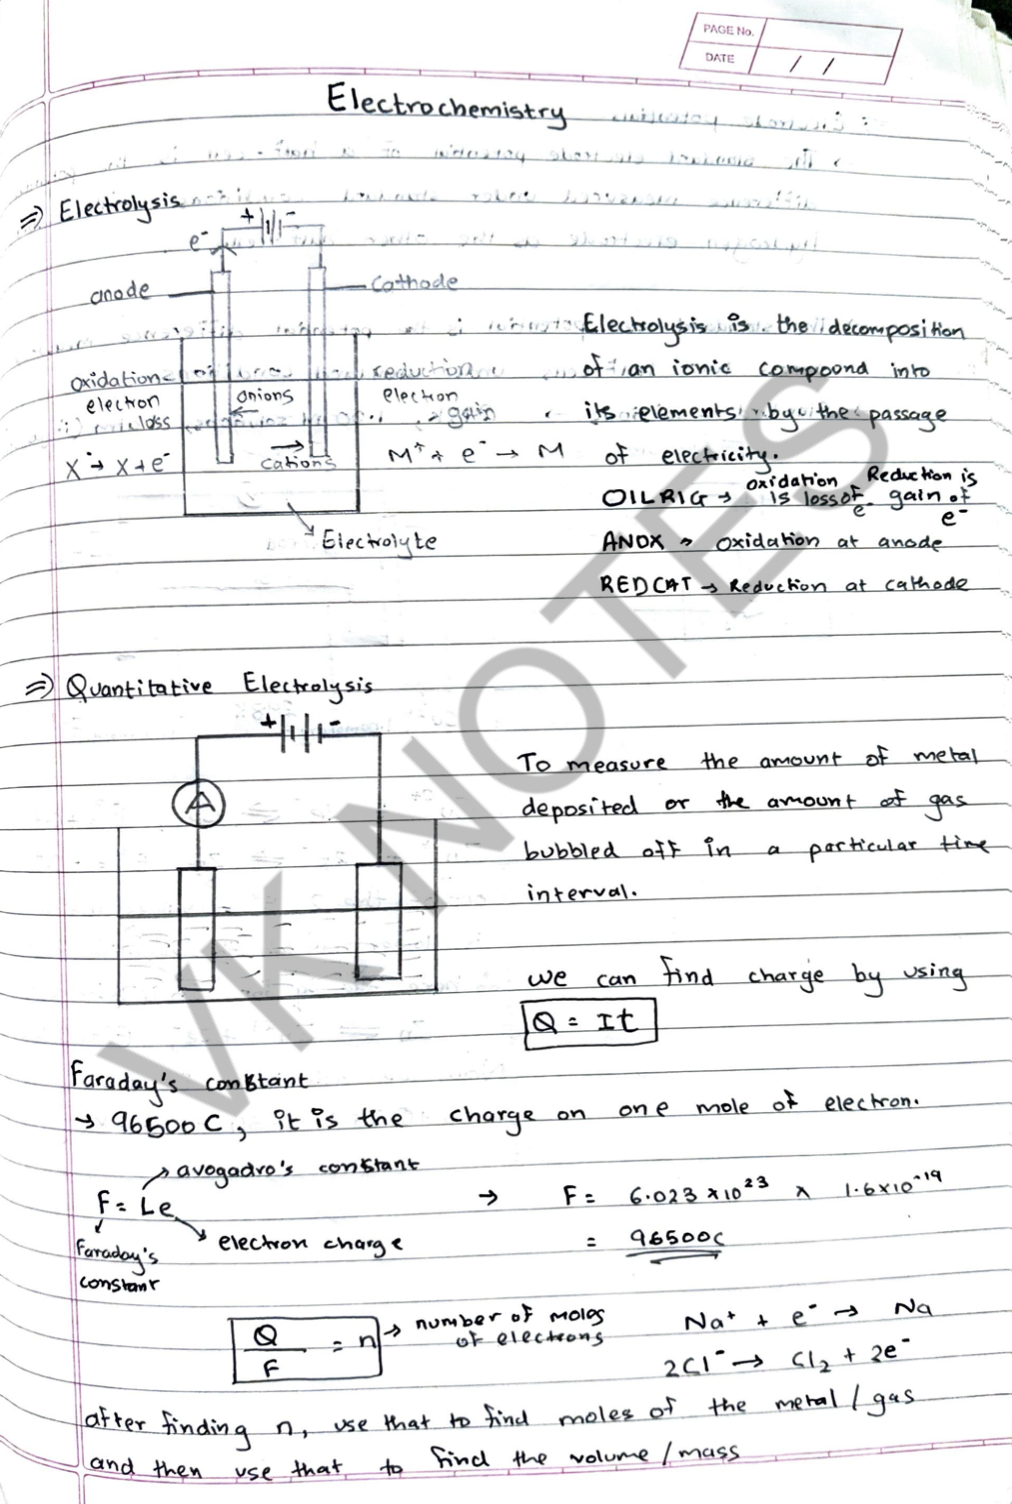 PAGE No.
DATE / /
Electrochemistry
⇒ Electrolysis
+ -
e⁻
anode
Cathode
oxidation
electron
loss
X⁻ → X + e⁻
anions
cations
reduction
electron
gain
M⁺ + e⁻ → M
Electrolyte
Electrolysis is the decomposition
of an ionic compound into
its elements by the passage
of electricity.
OILRIG → oxidation is loss of e⁻ Reduction is gain of e⁻
ANOX → oxidation at anode
REDCAT → Reduction at cathode
⇒ Quantitative Electrolysis
+ -
A
To measure the amount of metal
deposited or the amount of gas
bubbled off in a particular time
interval.
we can find charge by using
Q = It
Faraday's constant
→ 96500C, it is the charge on one mole of electron.
avogadro's constant
F = Le
Faraday's
constant
electron charge
→ F = 6.023 × 10²³ × 1.6×10⁻¹⁹
= 96500C
Q/F = n → number of moles
of electrons
Na⁺ + e⁻ → Na
2Cl⁻ → Cl₂ + 2e⁻
after finding n, use that to find moles of the metal / gas
and then use that to find the volume / mass
VK NOTES